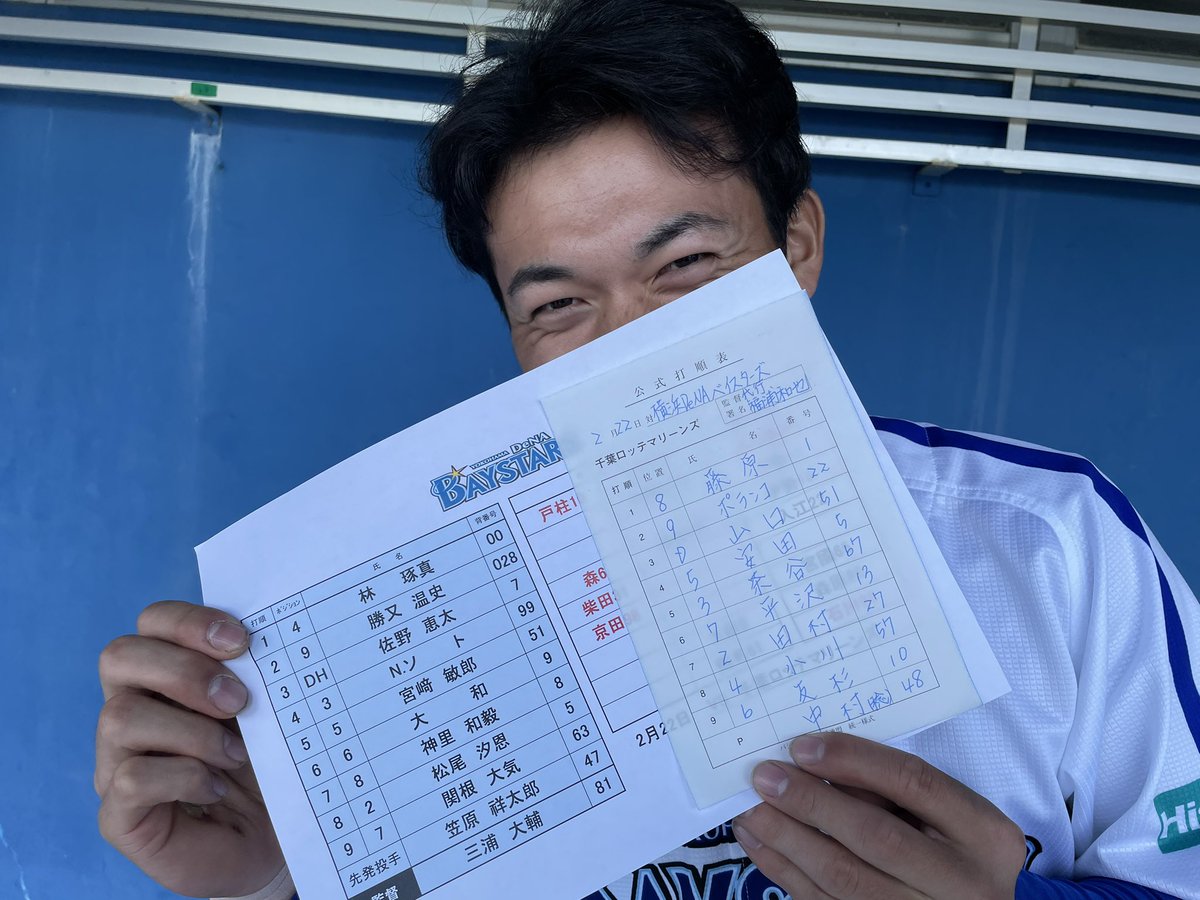 YOKOHAMA DeNA
BAYSTAR
打順 ポジション 氏 名 背番号
1 4 林 琢真 00
2 9 勝又 温史 028
3 DH 佐野 恵太 7
4 3 N.ソト 99
5 5 宮﨑 敏郎 51
6 6 大和 9
7 8 神里 和毅 8
8 2 松尾 汐恩 5
9 7 関根 大気 63
先発投手 笠原 祥太郎 47
監督 三浦 大輔 81
戸柱1
森6
柴田
京田
2月22日
公式打順表
2月22日 対 横浜DeNAベイスターズ
監督署名 代行 福浦和也
千葉ロッテマリーンズ
打順 位置 氏 名 番号
1 8 藤原 1
2 9 ポランコ 22
3 D 山口 51
4 5 安田 5
5 3 茶谷 67
6 7 平沢 13
7 2 田村 27
8 4 小川 57
9 6 友杉 10
P 中村(稔) 48
Hi